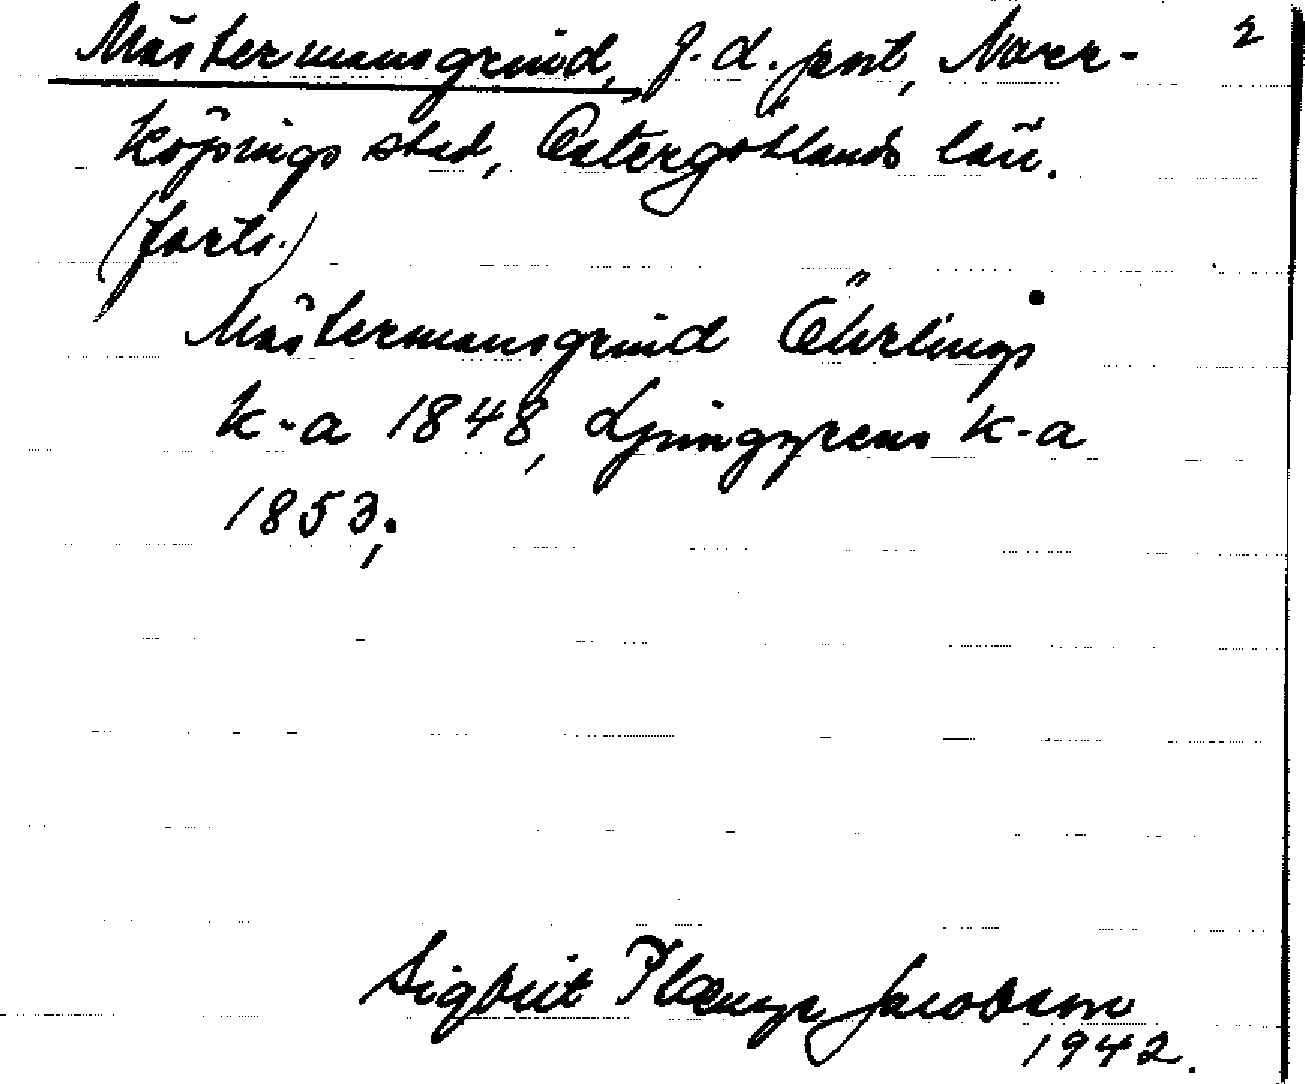 Mästermansgrind, f.d. port, Norr- 2
köpings stad, Östergötlands län.
(forts.)
Mästermansgrind Öhrlings
k-a 1848, Ljunggrens k-a
1853;
Sigbrit Plænge Jacobson
1942.